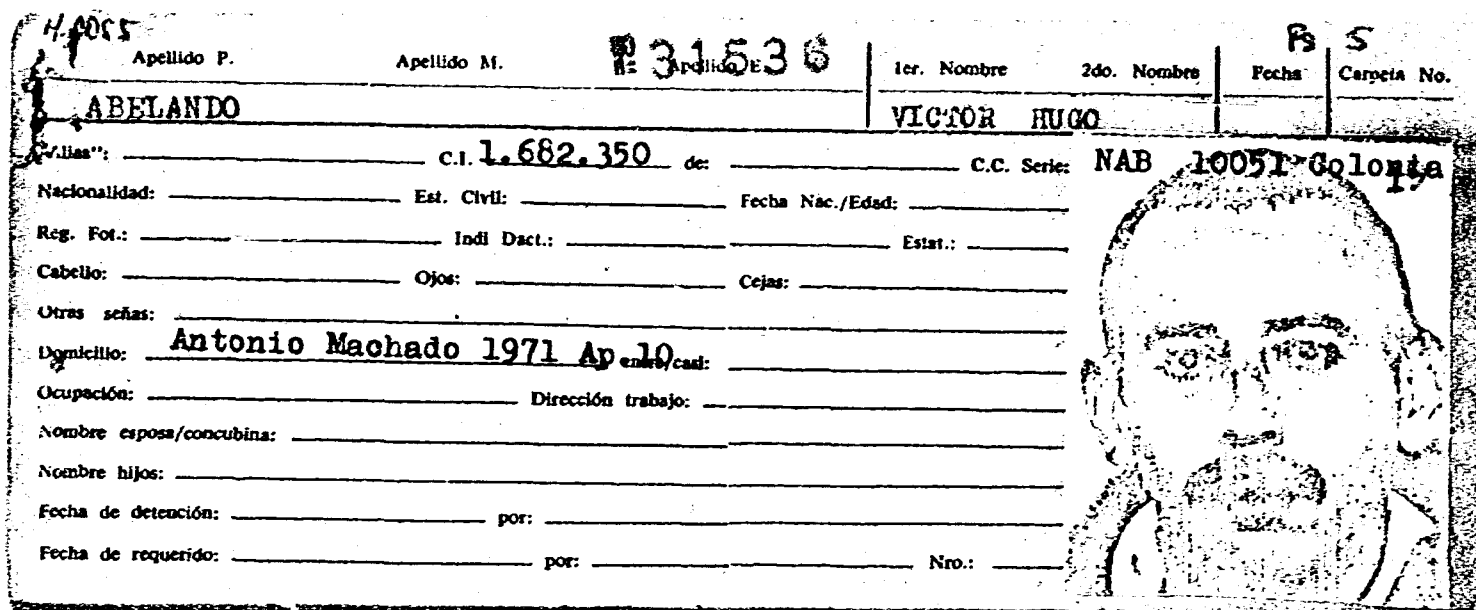 Ps 5
Apellido P. Apellido M. Nº 31536 Apellido E. 1er. Nombre 2do. Nombre Fecha Carpeta No.
ABELANDO VICTOR HUGO
"Alias": C.I. 1.682.350 de: C.C. Serie: NAB 10051 Colonia
Nacionalidad: Est. Civil: Fecha Nac./Edad:
Reg. Fot.: Indi Dact.: Estat.:
Cabello: Ojos: Cejas:
Otras señas:
Domicilio: Antonio Machado 1971 Ap 10 entre/casi:
Ocupación: Dirección trabajo:
Nombre esposa/concubina:
Nombre hijos:
Fecha de detención: por:
Fecha de requerido: por: Nro.: